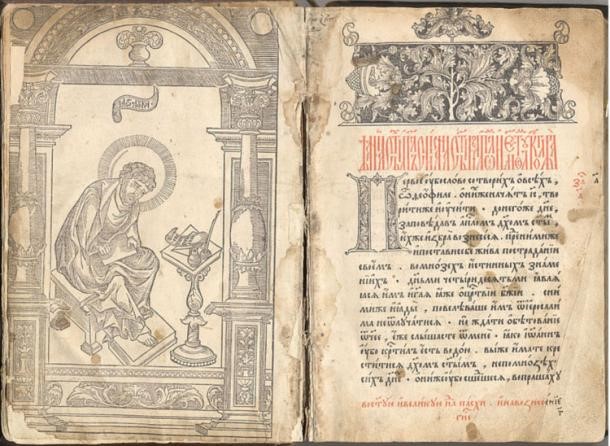 Первое ᲂубо слово сотворихъ ѡ всѣхъ,
ѡ Ѳеофиле. ѡ нихже начатъ і҃с, тво
рити же и ᲂучити. донегоже дн҃е,
заповѣдавъ ап҃лѡмъ дх҃омъ ст҃ы
ихже избра вознесесѧ. пред ними же
и постави себе жива по страданїи
своемъ. во мнозѣхъ истинныхъ знаме
нїихъ. дньми четыридесѧтьми ꙗвлѧ
ꙗсѧ имъ и гл҃ѧ ꙗже ѡ црⷭтвїи бж҃їи. с ни
ми же ꙗдыи, повелѣваше имъ ѿ їерⷭли
ма не ѿлучатисѧ. но ждати ѡбѣтованїѧ
ѿчее, еже слышасте ѿ мене. ꙗко їѡаннъ
ᲂубо крⷭтилъ есть водою. вы же имате кре
ститисѧ дх҃омъ ст҃ымъ. не по мнозѣхъ
сихъ дн҃ехъ. ѡни же ᲂубо сшедшесѧ, вопрашаху
во ст҃ую и великую нлⷣю пасхи. и на вознесенїе
гн҃е